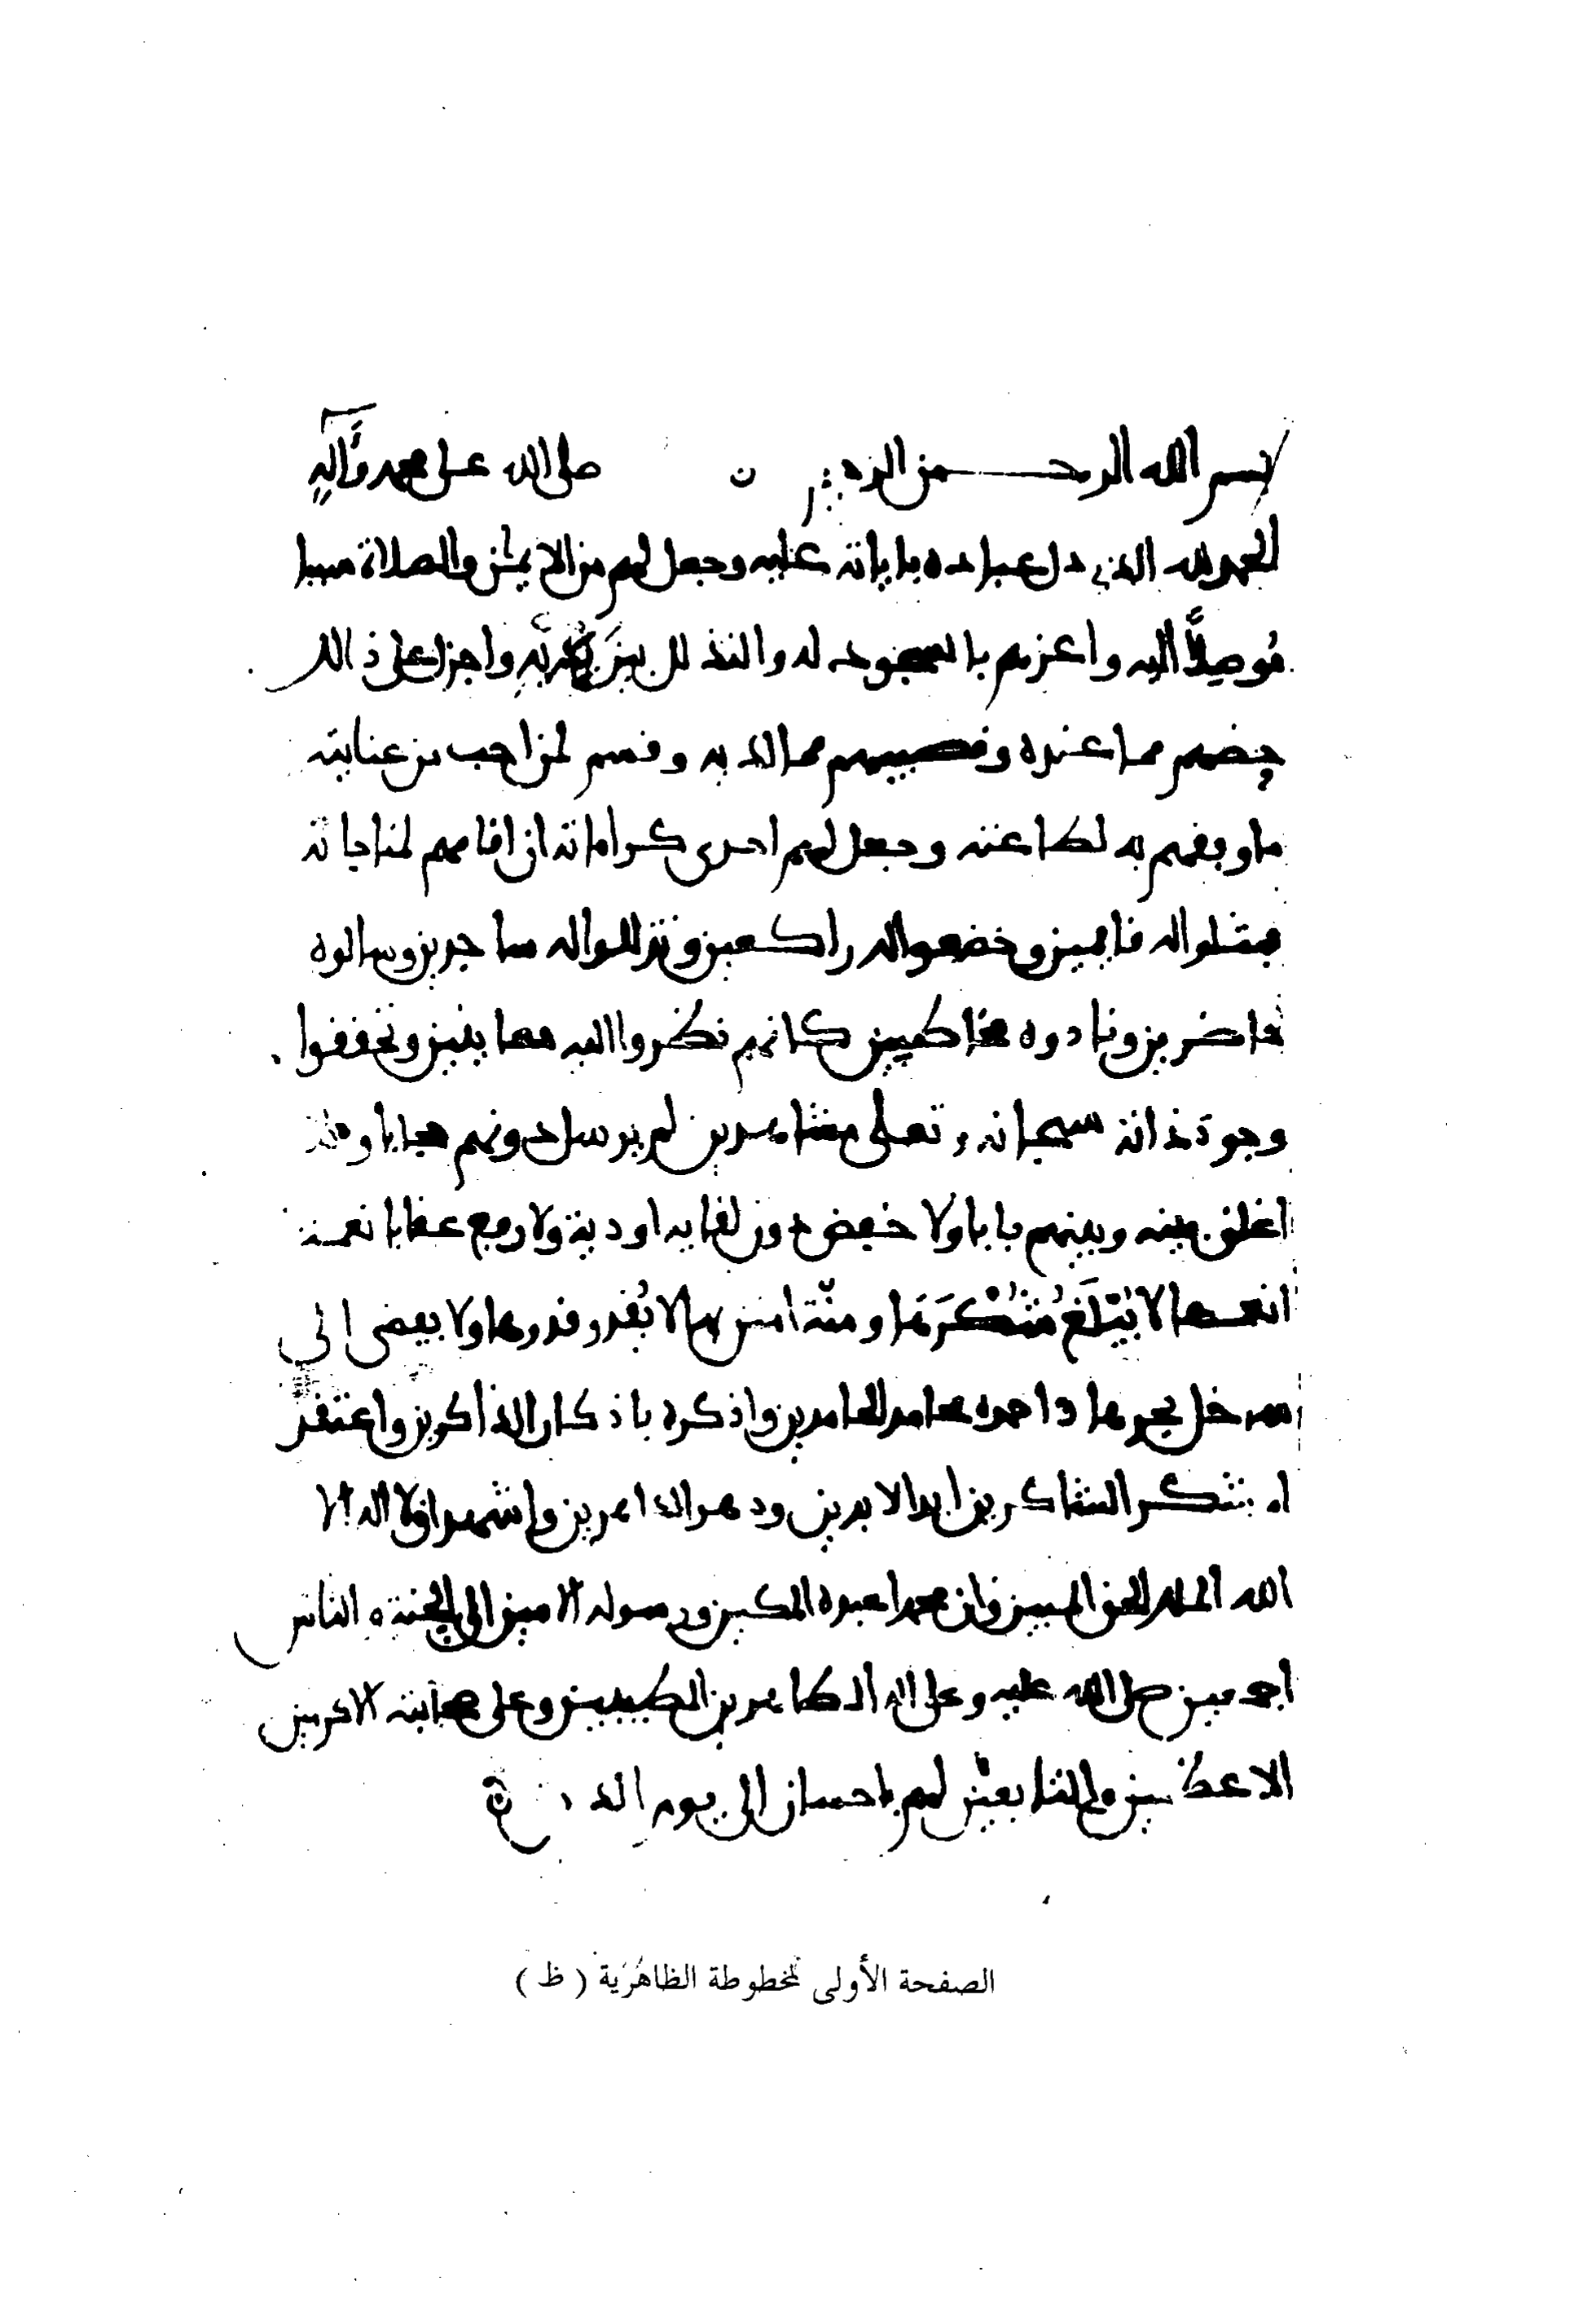 بسم الله الرحمن الرحيم ن صلى الله على محمد وآله
الحمد لله الذي دل عباده باياته عليه وجعل لهم من الايمن والصلاة سببا
موصلا اليه واعزهم بالسجود له والتذلل بين واجزل على ذالك
حضهم مما عنده ونصيبهم مما لديه وقسم لمن احب من عنايته
ما وفقهم به لطاعته وجعل لهم احرى كراماته ان اقامهم لمناجاته
فمثلوا له قايمين وخضعوا له راكعين وتذللوا له ساجدين وسالوه
حاضرين ونادوه مخاطبين كانهم نظروا اليه معاينين وتحققوا
وجود ذاته سبحانه وتعلى مشاهدين لم يرسل دونهم حجابا ولا
اغلق بينه وبينهم بابا ولا خفض دون لقايه اودية ولا رفع عقابا نعمة
انعمها لا يبتلغ شكرها ومنة امتن بها لا يقدر قدرها ولا يفضى الى
ساحل بحرها واحمده بمحامد الحامدين واذكره باذكار الذاكرين واعتقد
له شكر الشاكرين ابد الابدين ودهر الداهرين واشهد ان لا اله الا
الله الملك الحق المبين وان محمدا عبده المكين ورسوله الامين الى الجنة والناس
اجمعين صلى الله عليه وعلى اله الطاهرين الطيبين وعلى صحابته الاكرمين
الاعظمين والتابعين لهم باحسان الى يوم الدين
الصفحة الأولى لمخطوطة الظاهرية ( ظ )